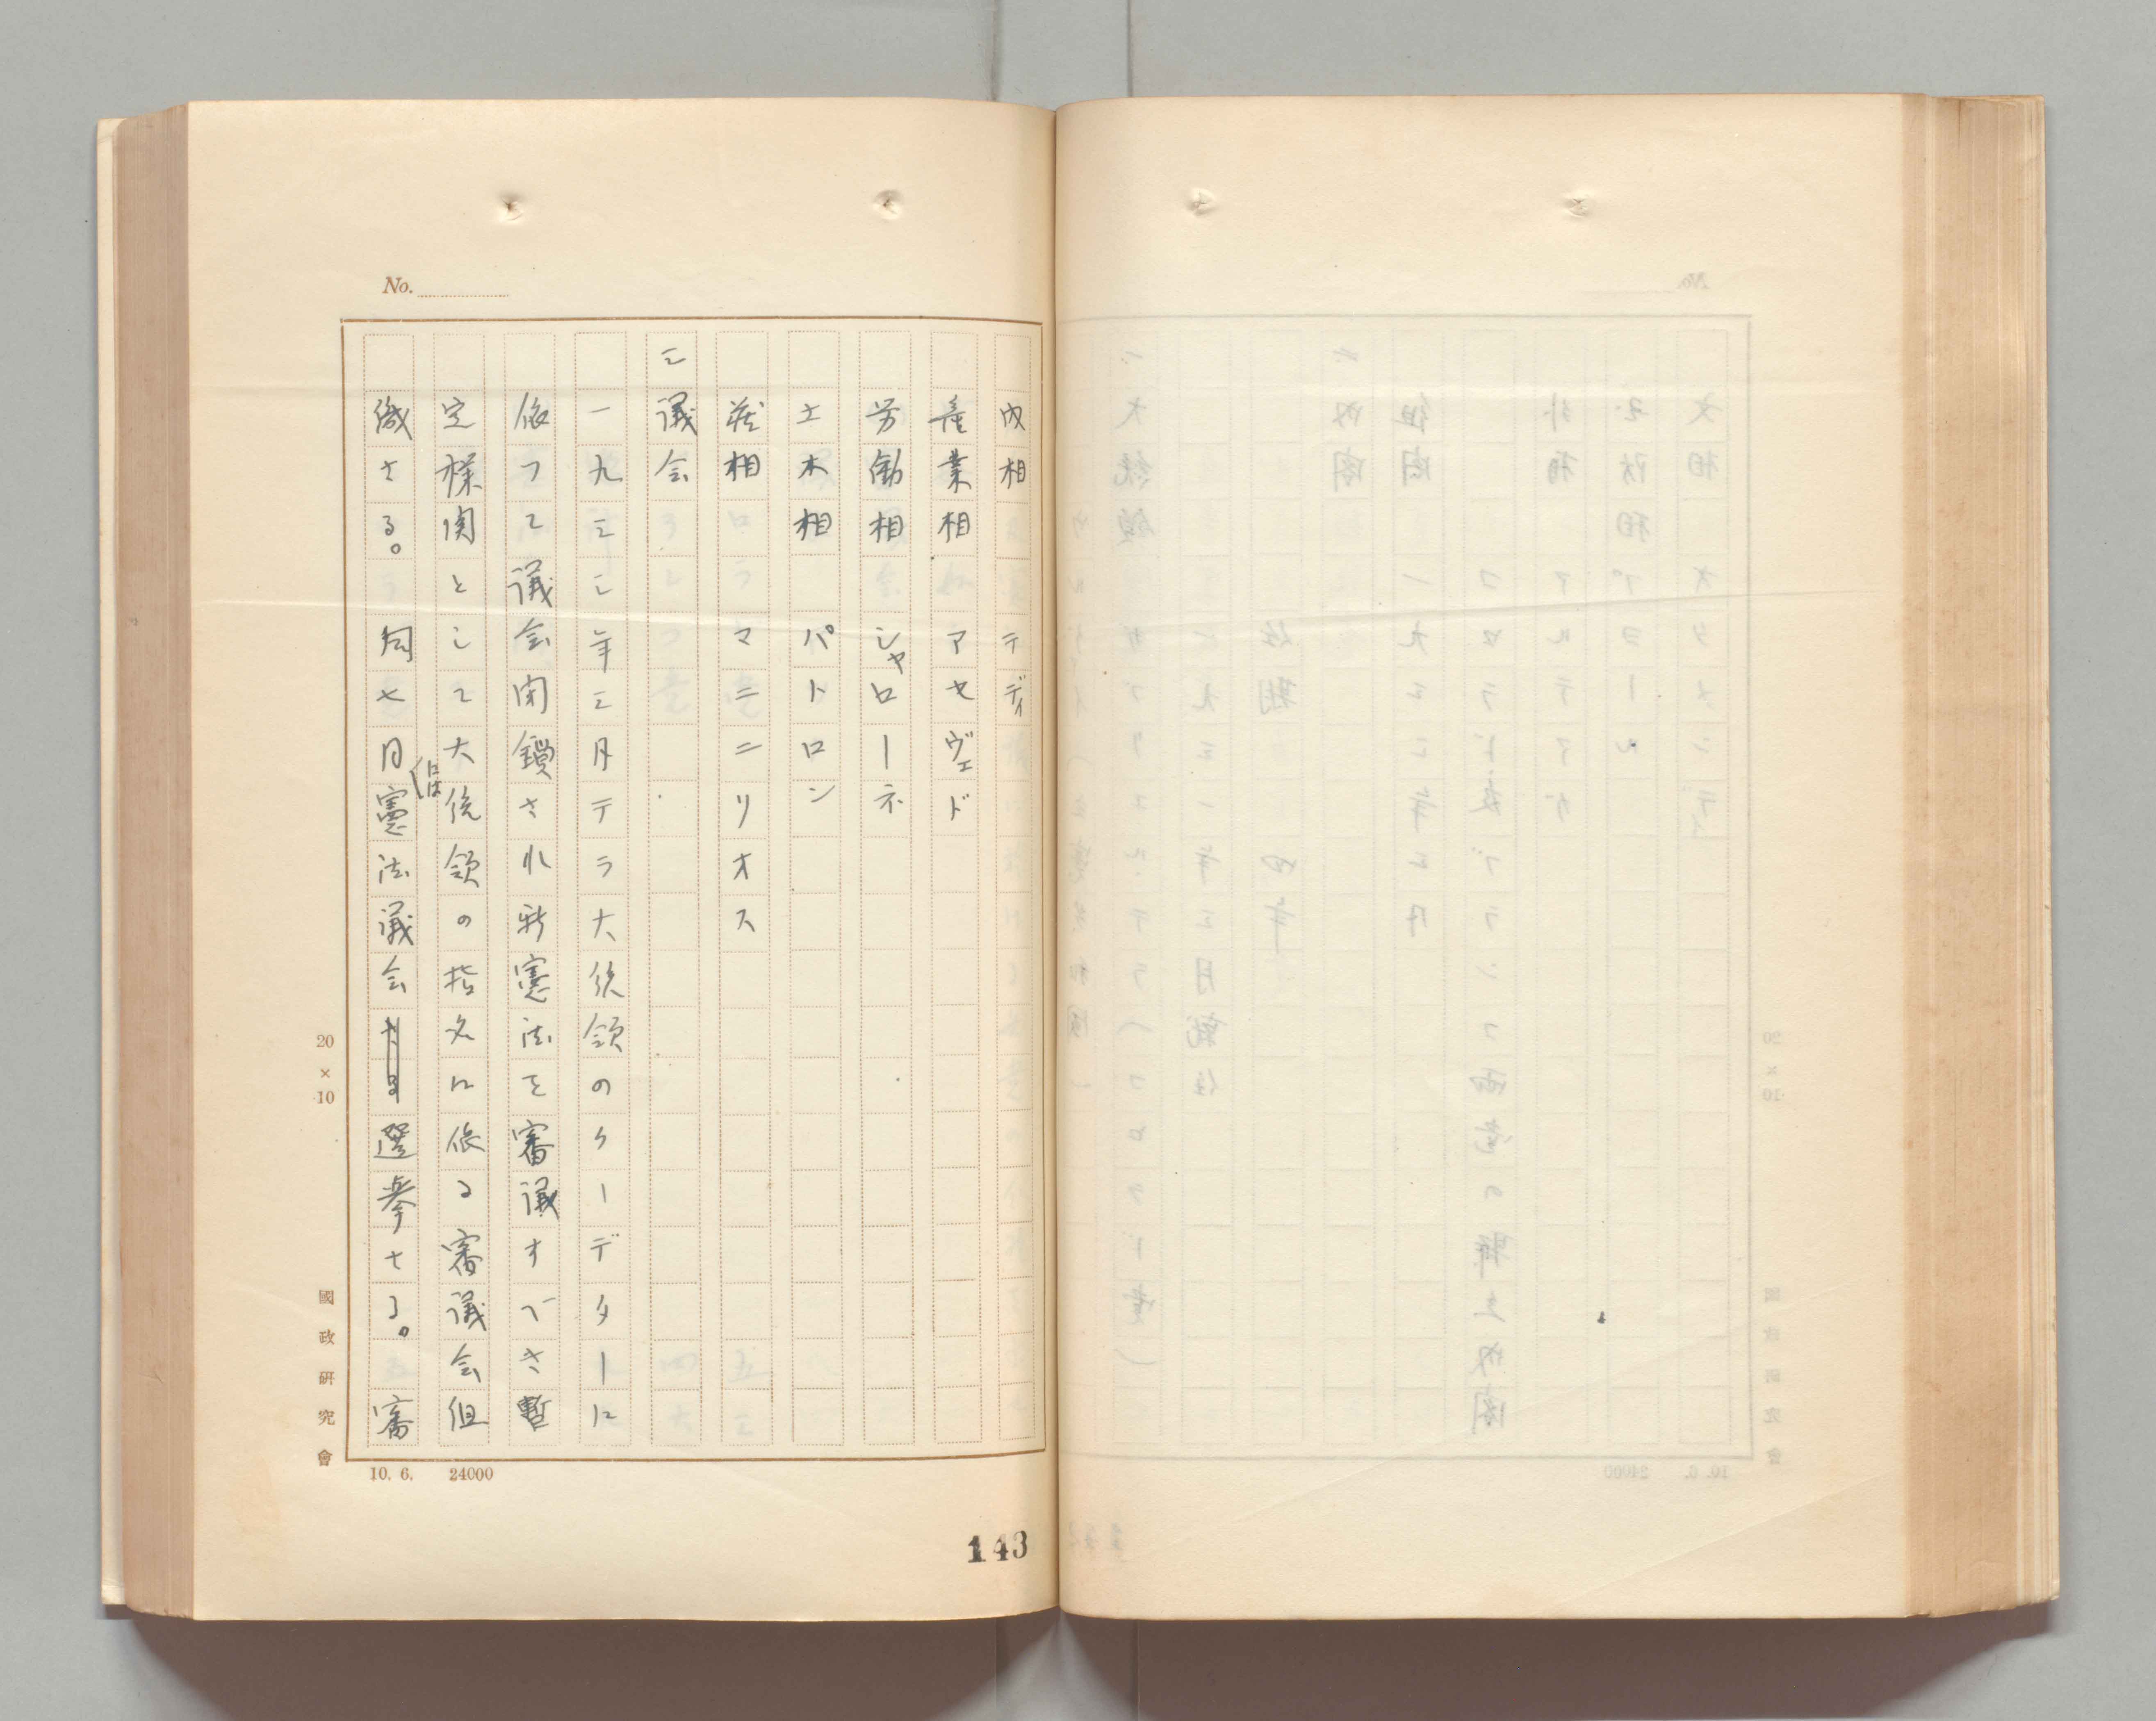 No.
内相　テディ
産業相　アセヴェド
労働相　シャローネ
土木相　パトロン
蔵相　マニニリオス
三　議会
一九三三年三月テラ大統領のクーデターに
依つて議会閉鎖され新憲法を審議すべき暫
定機関として大統領の指名に依る審議会組
織さる。　同七月には憲法議会さる選挙せる。審
20×10
國政研究會
10. 6.　24000
143